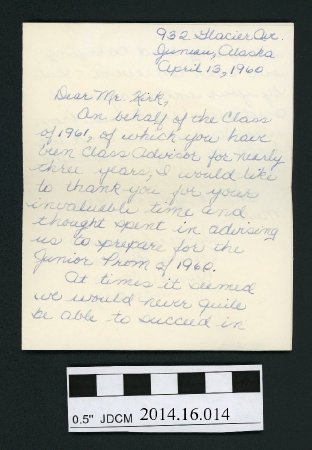 932 Glacier Av.
Juneau, Alaska
April 13, 1960
Dear Mr. Kirk,
On behalf of the Class
of 1961, of which you have
been Class Advisor for nearly
three years, I would like
to thank you for your
invaluable time and
thought spent in advising
us to prepare for the
Junior Prom of 1960.
At times it seemed
we would never quite
be able to succeed in
0.5" JDCM 2014.16.014